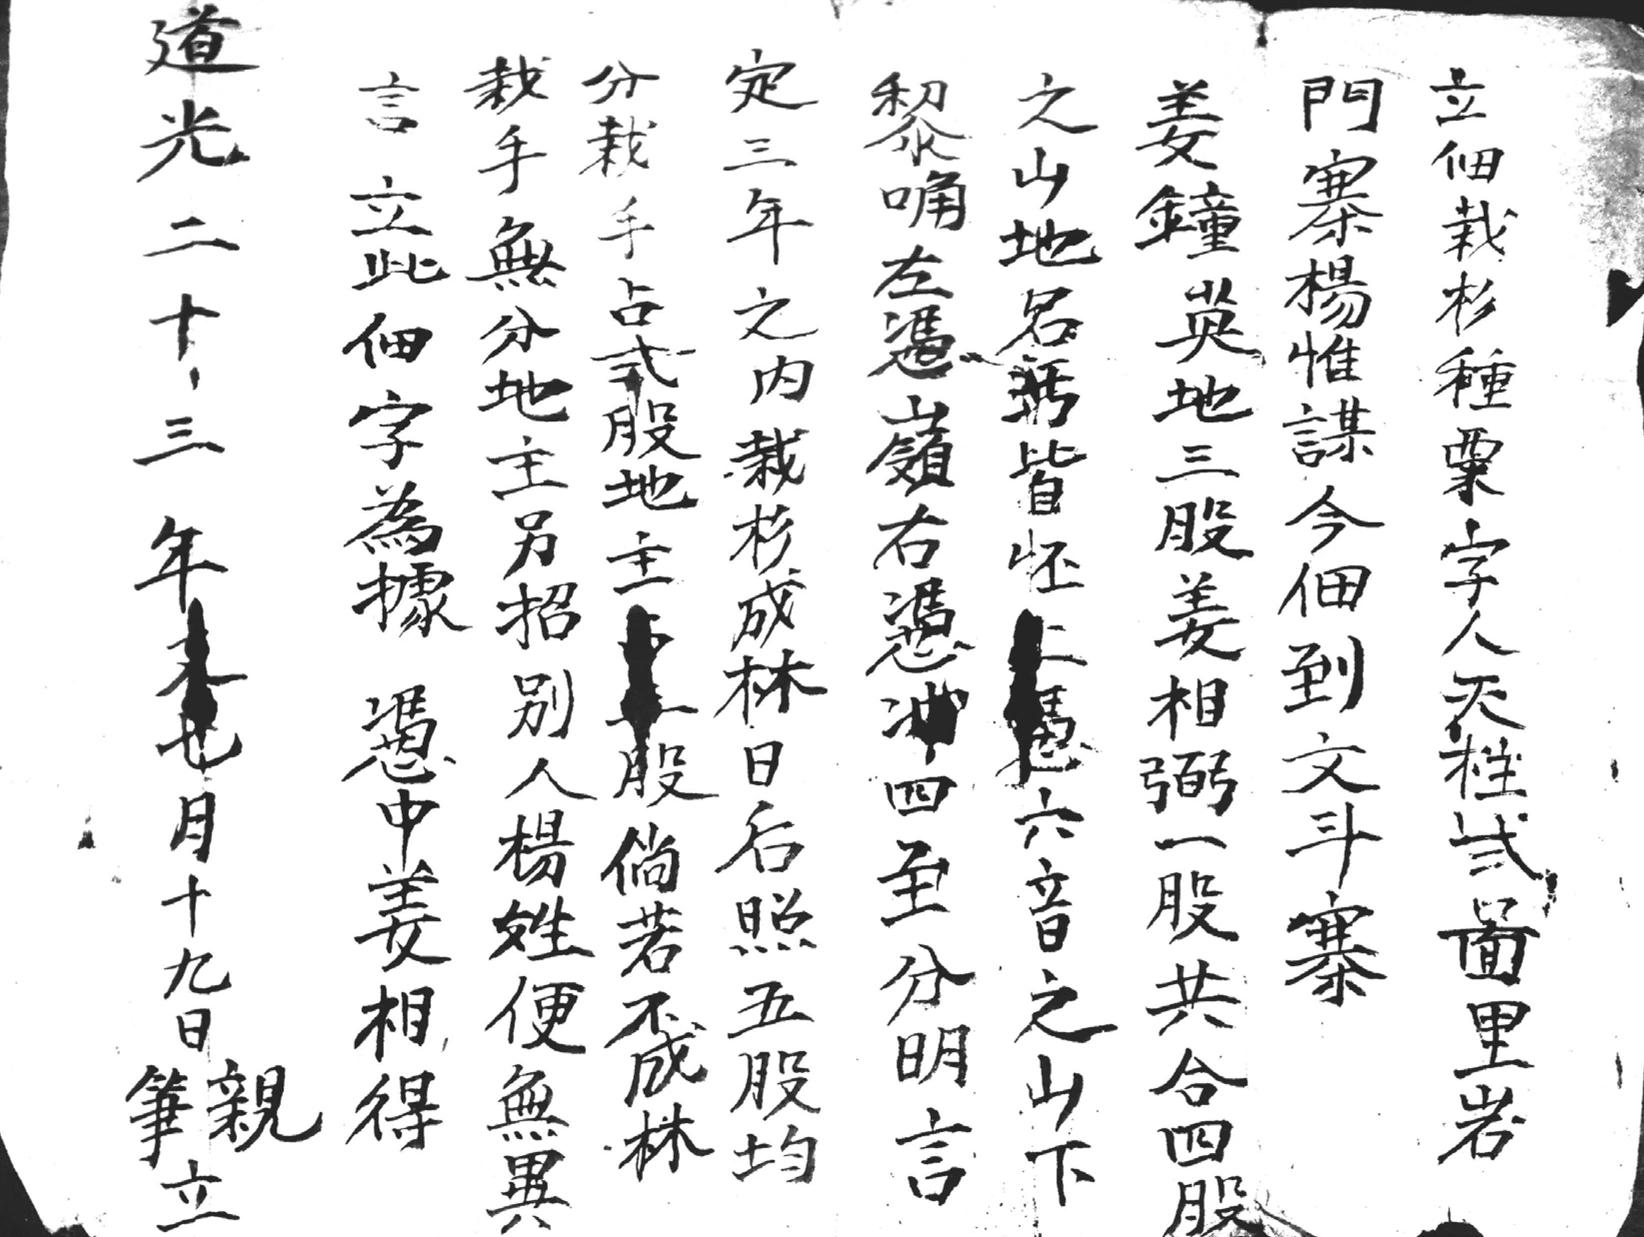 立佃栽杉種粟字人天柱弍啚里岩
門寨楊惟謀今佃到文斗寨
姜鐘英地三股姜相弼一股共合四股
之山地名皆怀上憑六音之山下
黎嘃左憑嶺右憑冲四至分明言
定三年之内栽杉成林日后照五股均
分栽手占弍股地主股倘若不成林
栽手無分地主另招别人楊姓便無異
言立此佃字為據 憑中姜相得
道光二十三年七月十九日親筆立